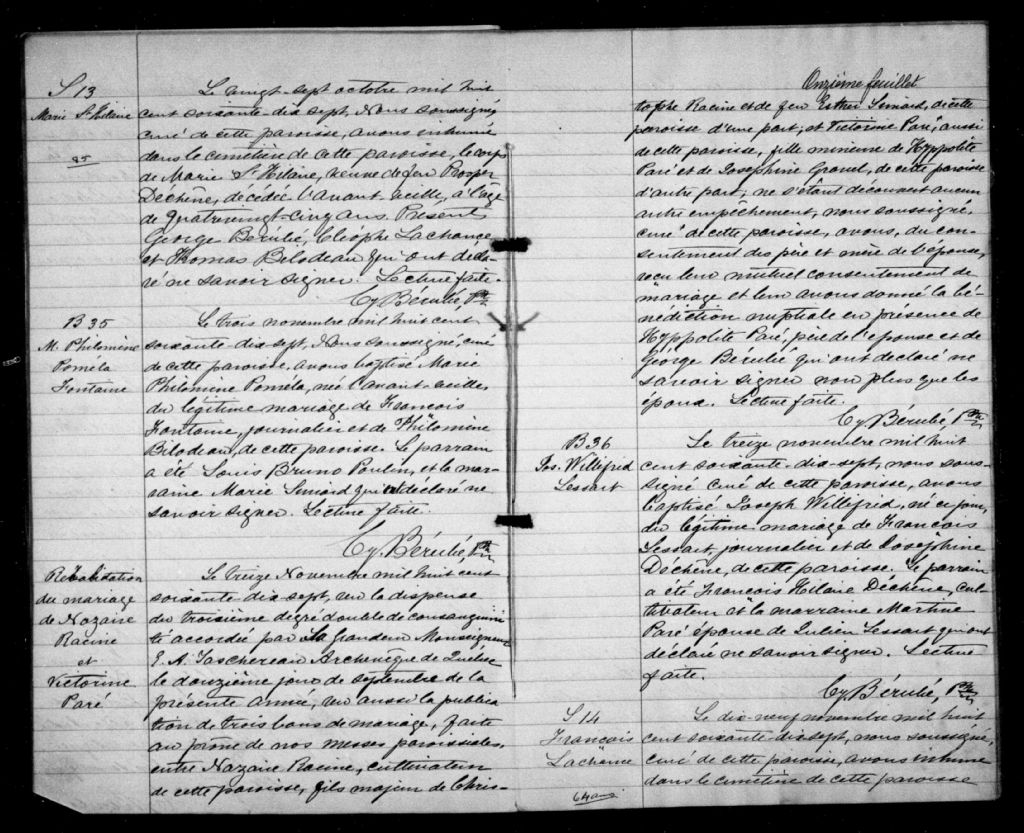 S 13
Marie St Hilaire
85
Le vingt-sept octobre mil huit
cent soixante-dix sept, Nous soussigné,
curé de cette paroisse, avons inhumé
dans le cimetière de cette paroisse, le corps
de Marie St Hilaire, veuve de feu Prosper
Dechène, décédée l'avant-veille, à l'âge
de Quatrevingt-Cinq ans. Present
George Bérubé, Cléophe Lachance
et Thomas Bilodeau qui ont décla-
ré ne savoir signer. Lecture faite.
Cy. Bérubé, Ptre
B 35
M. Philomène
Poméla
Fontaine
Le trois novembre mil huit cent
soixante-dix-sept, Nous soussigné, curé
de cette paroisse, avons baptisé Marie
Philomène Poméla, née l'avant-veille,
du légitime mariage de François
Fontaine, journalier et de Philomène
Bilodeau, de cette paroisse. Le parrain
a été Louis Bruno Poulin, et la mar-
raine Marie Simard qui ont déclaré ne
savoir signer. Lecture faite.
Cy. Bérubé, Ptre
Réhabilitation
du mariage
de Nazaire
Racine
et
Victorine
Paré
Le treize Novembre mil huit cent
soixante-dix-sept, vu la dispense
du troisième dégré double de consanguini-
té accordée par Sa grandeur Monseigneur
E. A. Taschereau Archevêque de Québec
le douzième jour de septembre de la
présente année, vu aussi la publica
tion de trois bans de mariage, faite
au prône de nos messes paroissiales,
entre Nazaire Racine, cultivateur
de cette paroisse, fils majeur de Chris-
Onzième feuillet
tophe Racine et de feu Esther Simard, de cette
paroisse d'une part; et Victorine Paré, aussi
de cette paroisse, fille mineure de Hyppolite
Paré et de Josephine Gravel, de cette paroisse
d'autre part; ne s'étant découvert aucun
autre empêchement, nous soussigné,
curé de cette paroisse, avons, du con-
sentement des père et mère de l'épouse,
reçu leur mutuel consentement de
mariage et leur avons donné la bé-
nediction nuptiale en présence de
Hyppolite Paré, père de l'épouse et de
George Berubé qui ont declaré ne
savoir signer non plus que les
époux. Lecture faite.
Cy. Bérubé, Ptre
B 36
Jos. Willifrid
Lessart
Le treize novembre mil huit
cent soixante-dix-sept, nous sous-
signé curé de cette paroisse, avons
baptisé Joseph Willifrid, né ce jour,
du légitime mariage de François
Lessart, journalier et de Josephine
Dechène, de cette paroisse. Le parrain
a été François Hilaire Déchène, cul-
tivateur et la marraine Martine
Paré épouse de Julien Lessart qui ont
déclaré ne savoir signer. Lecture
faite.
Cy. Bérubé, Ptre
S 14
François
Lachance
64 ans
Le dix-neuf novembre mil huit
cent soixante-dix-sept, nous soussigné,
curé de cette paroisse, avons inhumé
dans le cimetière de cette paroisse